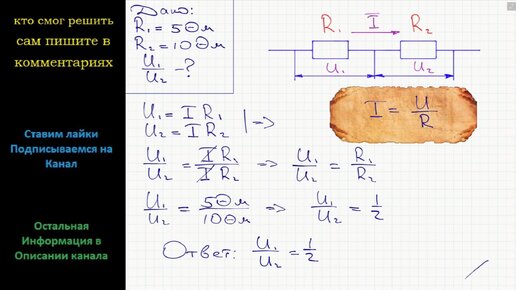 кто смог решить
сам пишите в
комментариях
Ставим лайки
Подписываемся на
Канал
Остальная
Информация в
Описании канала
Дано:
R₁ = 5 Ом
R₂ = 10 Ом
U₁/U₂ - ?
R₁ I R₂
U₁ U₂
I = U/R
U₁ = I R₁
U₂ = I R₂ | =>
U₁/U₂ = I R₁/I R₂ => U₁/U₂ = R₁/R₂
U₁/U₂ = 5 Ом/10 Ом => U₁/U₂ = 1/2
Ответ: U₁/U₂ = 1/2